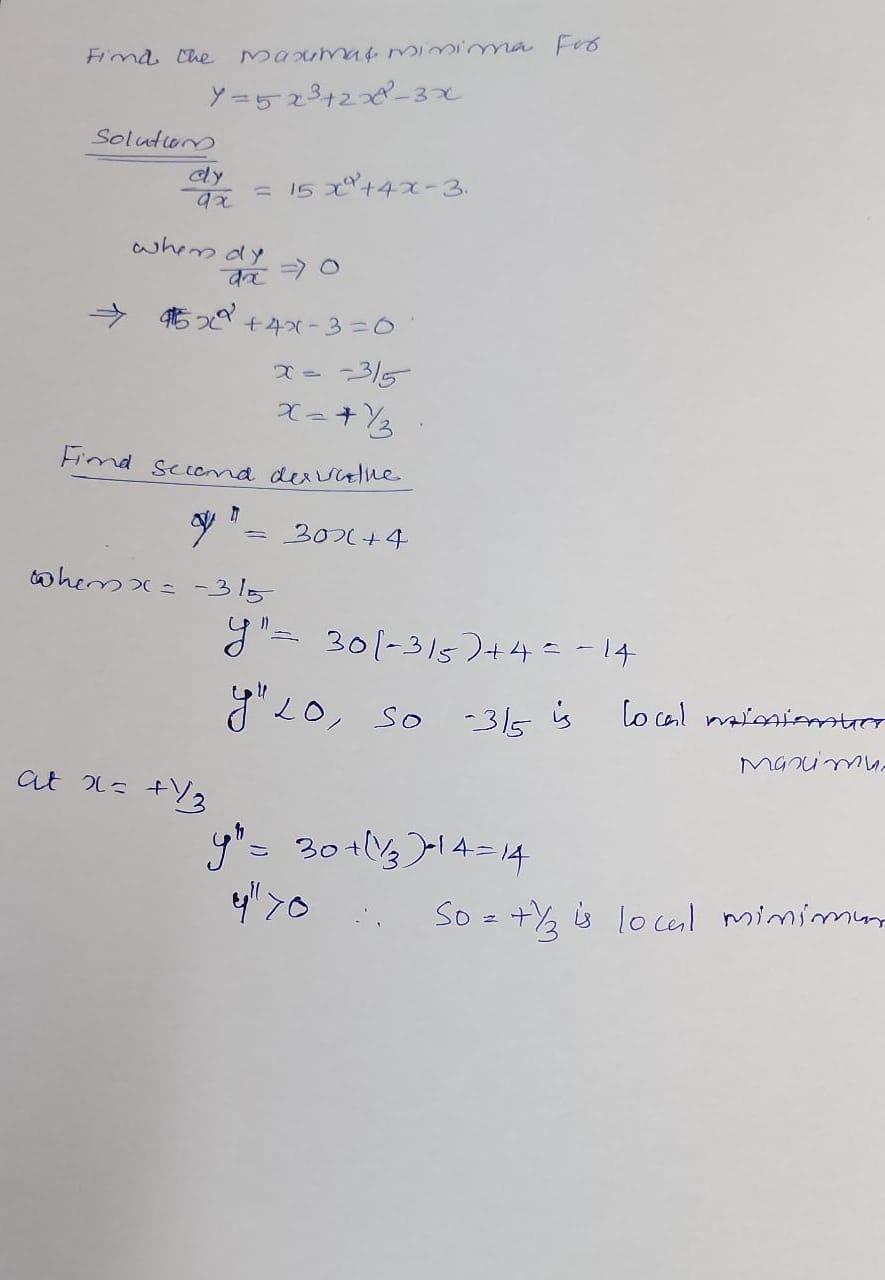 Find the maxima & minima For
y = 5x³+2x²-3x
Solution
dy/dx = 15x²+4x-3.
when dy/dx ⇒ 0
⇒ 15x²+4x-3=0
x = -3/5
x = +1/3.
Find second derivative
y" = 30x+4
when x = -3/5
y" = 30(-3/5)+4 = -14
y"<0, so -3/5 is local
maximu
at x = +1/3
y" = 30+(1/3)+14=14
y">0 ∴ So = +1/3 is local minimum